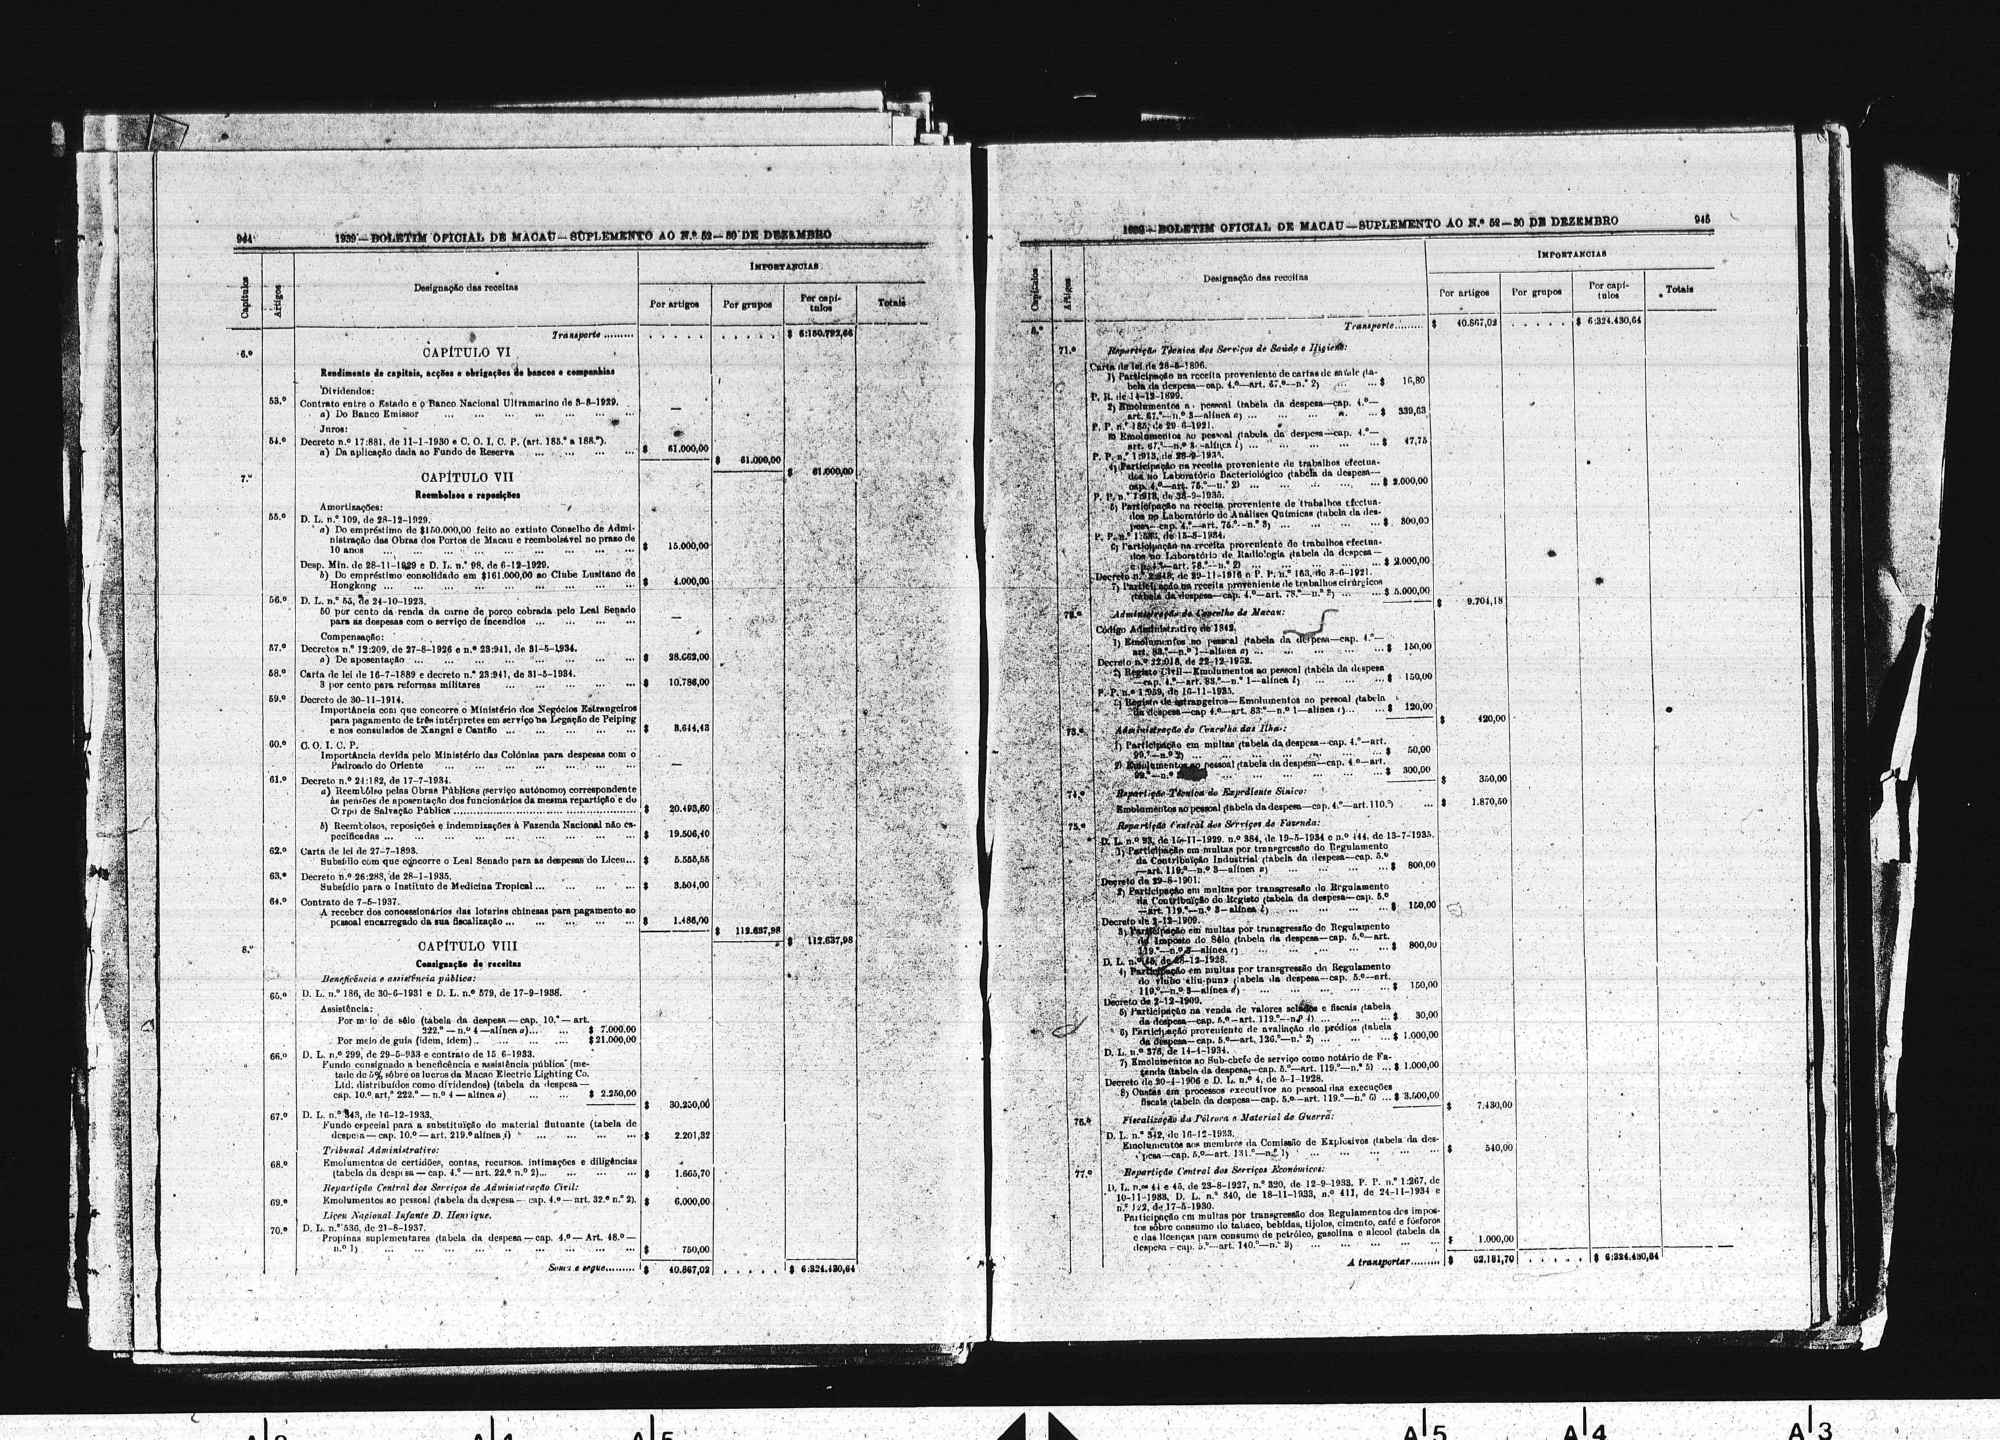 944
1939 — BOLETIM OFICIAL DE MACAU — SUPLEMENTO AO N.º 52 — 30 DE DEZEMBRO
Capítulos
Artigos
Designação das receitas
IMPORTANCIAS
Por artigos
Por grupos
Por capí-
tulos
Totais
Transporte ......... . . . . . . . . . . $ 6:150.792,66
6.º
CAPÍTULO VI
Rendimento de capitais, acções e obrigações de bancos e companhias
Dividendos:
53.º Contrato entre o Estado e o Banco Nacional Ultramarino de 3-8-1929.
a) Do Banco Emissor ... ... ... ... ... ... ... —
Juros:
54.º Decreto n.º 17:881, de 11-1-1930 e C. O. I. C. P. (art. 185.º a 188.º).
a) Da aplicação dada ao Fundo de Reserva ... ... ... ... $ 61.000,00
$ 61.000,00
$ 61.000,00
7.º
CAPÍTULO VII
Reembolsos e reposições
Amortizações:
55.º D. L. n.º 109, de 28-12-1929.
a) Do empréstimo de $150.000,00 feito ao extinto Conselho de Admi-
nistração das Obras dos Portos de Macau e reembolsável no praso de
10 anos ... ... ... ... ... ... ... ... ... $ 15.000,00
Desp. Min. de 28-11-1929 e D. L. n.º 98, de 6-12-1929.
b) Do empréstimo consolidado em $161.000,00 ao Clube Lusitano de
Hongkong ... ... ... ... ... ... ... ... ... $ 4.000,00
56.º D. L. n.º 55, de 24-10-1923.
50 por cento da renda da carne de porco cobrada pelo Leal Senado
para as despesas com o serviço de incendios ... ... ... ... —
Compensação:
57.º Decretos n.º 12:209, de 27-8-1926 e n.º 23:941, de 31-5-1934.
a) De aposentação ... ... ... ... ... ... ... ... $ 28.662,00
58.º Carta de lei de 16-7-1889 e decreto n.º 23:941, de 31-5-1934.
3 por cento para reformas militares ... ... ... ... ... $ 10.786,00
59.º Decreto de 30-11-1914.
Importância com que concorre o Ministério dos Negócios Estrangeiros
para pagamento de três intérpretes em serviço na Legação de Peiping
e nos consulados de Xangai e Cantão ... ... ... ... ... $ 3.644,43
60.º C. O. I. C. P.
Importância devida pelo Ministério das Colónias para despesas com o
Padroado do Oriente ... ... ... ... ... ... ... —
61.º Decreto n.º 24:182, de 17-7-1934.
a) Reembôlso pelas Obras Públicas (serviço autónomo) correspondente
às pensões de aposentação dos funcionários da mesma repartição e do
Corpo de Salvação Pública ................................................ $ 20.493,60
b) Reembolsos, reposições e indemnizações à Fazenda Nacional não es-
pecificadas ... ... ... ... ... ... ... ... ... $ 19.506,40
62.º Carta de lei de 27-7-1893.
Subsídio com que concorre o Leal Senado para as despesas do Liceu... $ 5.555,55
63.º Decreto n.º 26:283, de 28-1-1935.
Subsídio para o Instituto de Medicina Tropical ... ... ... ... $ 3.504,00
64.º Contrato de 7-5-1937.
A receber dos concessionários das lotarias chinesas para pagamento ao
pessoal encarregado da sua fiscalização ... ... ... ... ... $ 1.486,00
$ 112.637,98
$ 112.637,98
8.º
CAPÍTULO VIII
Consignação de receitas
Beneficência e assistência pública:
65.º D. L. n.º 186, de 30-6-1931 e D. L. n.º 579, de 17-9-1938.
Assistência:
Por meio de sêlo (tabela da despesa — cap. 10.º — art.
222.º — n.º 4 — alínea a)... ... $ 7.000,00
Por meio de guia (idem, idem).. ... ... ... $ 21.000,00
66.º D. L. n.º 299, de 29-5-933 e contrato de 15-6-1933.
Fundo consignado a beneficência e assistência pública (me-
tade de 5% sôbre os lucros da Macao Electric Lighting Co.
Ltd. distribuídos como dividendos) (tabela da despesa —
cap. 10.º art.º 222.º — n.º 4 — alínea a) ... ... $ 2.250,00
$ 30.250,00
67.º D. L. n.º 343, de 16-12-1933.
Fundo especial para a substituïção do material flutuante (tabela de
despesa — cap. 10.º — art. 219.º alínea i) ... ... ... ... $ 2.201,32
Tribunal Administrativo:
68.º Emolumentos de certidões, contas, recursos, intimações e diligências
(tabela da despesa — cap. 4.º — art. 22.º n.º 2)... ... ... ... $ 1.665,70
Repartição Central dos Serviços de Administração Civil:
69.º Emolumentos ao pessoal (tabela da despesa — cap. 4.º — art. 32.º n.º 2). $ 6.000,00
Liceu Nacional Infante D. Henrique.
70.º D. L. n.º 536, de 21-8-1937.
Propinas suplementares (tabela da despesa — cap. 4.º — Art. 48.º —
n.º 1) ... ... ... ... ... ... ... ... ... $ 750,00
Soma e segue......... $ 40.867,02 . . . . . $ 6:324.430,64
1939 — BOLETIM OFICIAL DE MACAU — SUPLEMENTO AO N.º 52 — 30 DE DEZEMBRO
945
Capítulos
Artigos
Designação das receitas
IMPORTANCIAS
Por artigos
Por grupos
Por capí-
tulos
Totais
8.º
Transporte......... $ 40.867,02 . . . . . $ 6:324.430,64
71.º Repartição Técnica dos Serviços de Saúde e Higiene:
Carta de lei de 28-5-1896.
1) Participação na receita proveniente de cartas de saúde (ta-
bela da despesa — cap. 4.º — art. 67.º — n.º 2) ... ... $ 16,80
P. R. de 14-12-1899.
2) Emolumentos ao pessoal (tabela da despesa — cap. 4.º —
art. 67.º — n.º 3 — alínea a) ... ... ... ... $ 339,63
P. P. n.º 185, de 29-6-1921.
3) Emolumentos ao pessoal (tabela da despesa — cap. 4.º —
art. 67.º — n.º 3 — alínea b) ... ... ... ... $ 47,75
P. P. n.º 1:913, de 28-9-1935.
4) Participação na receita proveniente de trabalhos efectua-
dos no Laboratório Bacteriológico (tabela da despesa —
cap. 4.º — art. 75.º — n.º 2) ... ... ... ... $ 2.000,00
P. P. n.º 1:913, de 28-9-1935.
5) Participação na receita proveniente de trabalhos efectua-
dos no Laboratório de Análises Químicas (tabela da des-
pesa — cap. 4.º — art. 75.º — n.º 3) ... ... ... $ 300,00
P. P. n.º 1:583, de 15-8-1934.
6) Participação na receita proveniente de trabalhos efectua-
dos no Laboratório de Radiologia (tabela da despesa —
cap. 4.º — art. 78.º — n.º 2) ... ... ... ... $ 2.000,00
Decreto n.º 2:848, de 29-11-1916 e P. P. n.º 163, de 3-6-1921.
7) Participação na receita proveniente de trabalhos cirúrgicos
(tabela da despesa — cap. 4.º — art. 78.º — n.º 3) ... ... $ 5.000,00
$ 9.704,18
72.º Administração do Concelho de Macau:
Código Administrativo de 1842.
1) Emolumentos ao pessoal (tabela da despesa — cap. 4.º —
art. 83.º — n.º 1 — alínea a) ... ... ... ... $ 150,00
Decreto n.º 22:018, de 22-12-1932.
2) Registo Civil — Emolumentos ao pessoal (tabela da despesa
— cap. 4.º — art. 83.º — n.º 1 — alínea b) ... ... ... $ 150,00
P. P. n.º 1:959, de 16-11-1935.
3) Registo de estrangeiros — Emolumentos ao pessoal (tabela
da despesa — cap 4.º — art. 83.º — n.º 1 — alínea c) ... ... $ 120,00
$ 420,00
73.º Administração do Concelho das Ilhas:
1) Participação em multas (tabela da despesa — cap. 4.º — art.
99.º — n.º 2) ... ... ... ... ... $ 50,00
2) Emolumentos ao pessoal (tabela da despesa — cap. 4.º — art.
99.º — n.º ... ... ... ... ... $ 300,00
$ 350,00
74.º Repartição Técnica do Expediente Sínico:
Emolumentos ao pessoal (tabela da despesa — cap. 4.º — art. 110.º) ... $ 1.870,50
75.º Repartição Central dos Serviços de Fazenda:
D. L. n.º 93, de 15-11-1929, n.º 384, de 19-5-1934 e n.º 444, de 13-7-1935.
1) Participação em multas por transgressão do Regulamento
da Contribuição Industrial (tabela da despesa — cap. 5.º
— art. 119.º — n.º 3 — alínea a) ... ... ... ... $ 800,00
Decreto de 29-8-1901.
2) Participação em multas por transgressão do Regulamento
da Contribuição do Registo (tabela da despesa — cap. 5.º
— art. 119.º — n.º 3 — alínea b) ... ... ... ... $ 150,00
Decreto de 2-12-1909.
3) Participação em multas por transgressão do Regulamento
do Imposto do Sêlo (tabela da despesa — cap. 5.º — art.
119.º — n.º 3 — alínea c) ... ... ... ... ... $ 800,00
D. L. n.º 45, de 28-12-1928.
4) Participação em multas por transgressão do Regulamento
do vinho eliu-puns (tabela da despesa — cap. 5.º — art.
119.º — n.º 3 — alínea d) ... ... ... ... ... $ 150,00
Decreto de 2-12-1909.
5) Participação na venda de valores selados e fiscais (tabela
da despesa — cap. 5.º — art. 119.º — n.º 4) ... ... ... $ 30,00
6) Participação proveniente de avaliação de prédios (tabela
da despesa — cap. 5.º — art. 126.º — n.º 2) ... ... ... $ 1.000,00
D. L. n.º 376, de 14-4-1934.
7) Emolumentos ao Sub-chefe de serviço como notário de Fa-
zenda (tabela da despesa — cap. 5.º — art. 119.º — n.º 5) ... $ 1.000,00
Decreto de 20-4-1906 e D. L. n.º 4, de 5-1-1928.
8) Custas em processos executivos ao pessoal das execuções
fiscais (tabela da despesa — cap. 5.º — art. 119.º — n.º 6) ... $ 3.500,00
$ 7.430,00
76.º Fiscalização da Pólvora e Material de Guerra:
D. L. n.º 342, de 16-12-1933.
Emolumentos aos membros da Comissão de Explosivos (tabela da des-
pesa — cap. 5.º — art. 131.º — n.º 1) ... ... ... ... ... $ 540,00
77.º Repartição Central dos Serviços Económicos:
D. L. n.os 44 e 45, de 23-8-1927, n.º 320, de 12-9-1933, P. P. n.º 1:267, de
10-11-1933, D. L. n.º 340, de 18-11-1933, n.º 411, de 24-11-1934 e
n.º 122, de 17-5-1930.
Participação em multas por transgressão dos Regulamentos dos impos-
tos sôbre consumo do tabaco, bebidas, tijolos, cimento, café e fósforos
e das licenças para consumo de petróleo, gasolina e alcool (tabela da
despesa — cap. 5.º — art. 140.º — n.º 3) ... ... ... ... ... $ 1.000,00
A transportar......... $ 62.181,70 . . . . . $ 6:324.430,64
A 4
A 5
A 5
A 4
A 3